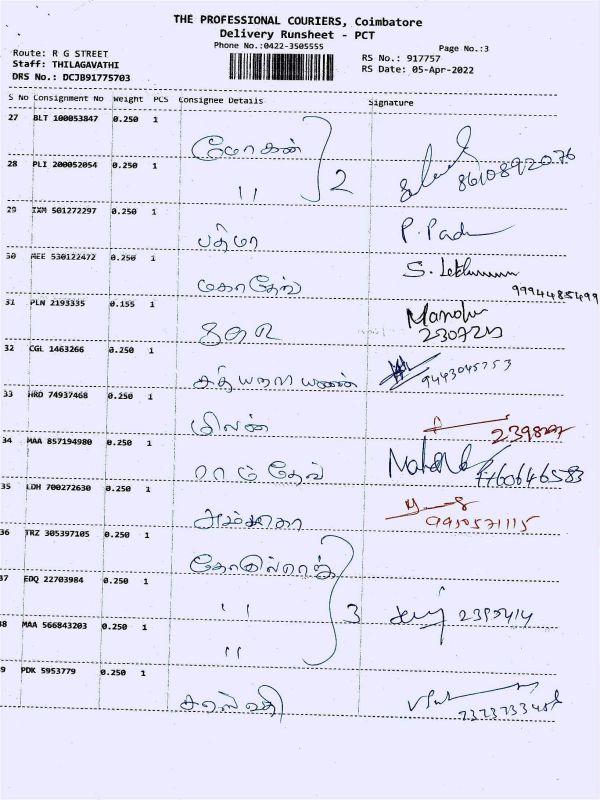 THE PROFESSIONAL COURIERS, Coimbatore
Delivery Runsheet - PCT
Phone No.:0422-3505555
Page No.:3
Route: R G STREET
RS No.: 917757
Staff: THILAGAVATHI
RS Date: 05-Apr-2022
DRS No.: DCJB91775703
S No Consignment No Weight PCS Consignee Details Signature
27 BLT 100053847 0.250 1 மோகன்
28 PLI 200052054 0.250 1 " 2 8610892076
29 IXM 501272297 0.250 1 பத்மா P. Padma
30 MEE 530122472 0.250 1 மகாதேவ் S. 9994485499
31 PLN 2193335 0.155 1 Manohr
32 CGL 1463266 0.250 1 சத்யநாராயணன் 9443045753
33 HRD 74937468 0.250 1 மிலன்
34 MAA 857194980 0.250 1 ராம்தேவ் 9760646583
35 LDH 700272630 0.250 1 அம்பிகா 9950571115
36 TRZ 305397105 0.250 1
37 EDQ 22703984 0.250 1 " 3
38 MAA 566843203 0.250 1 "
39 PDK 5953779 0.250 1